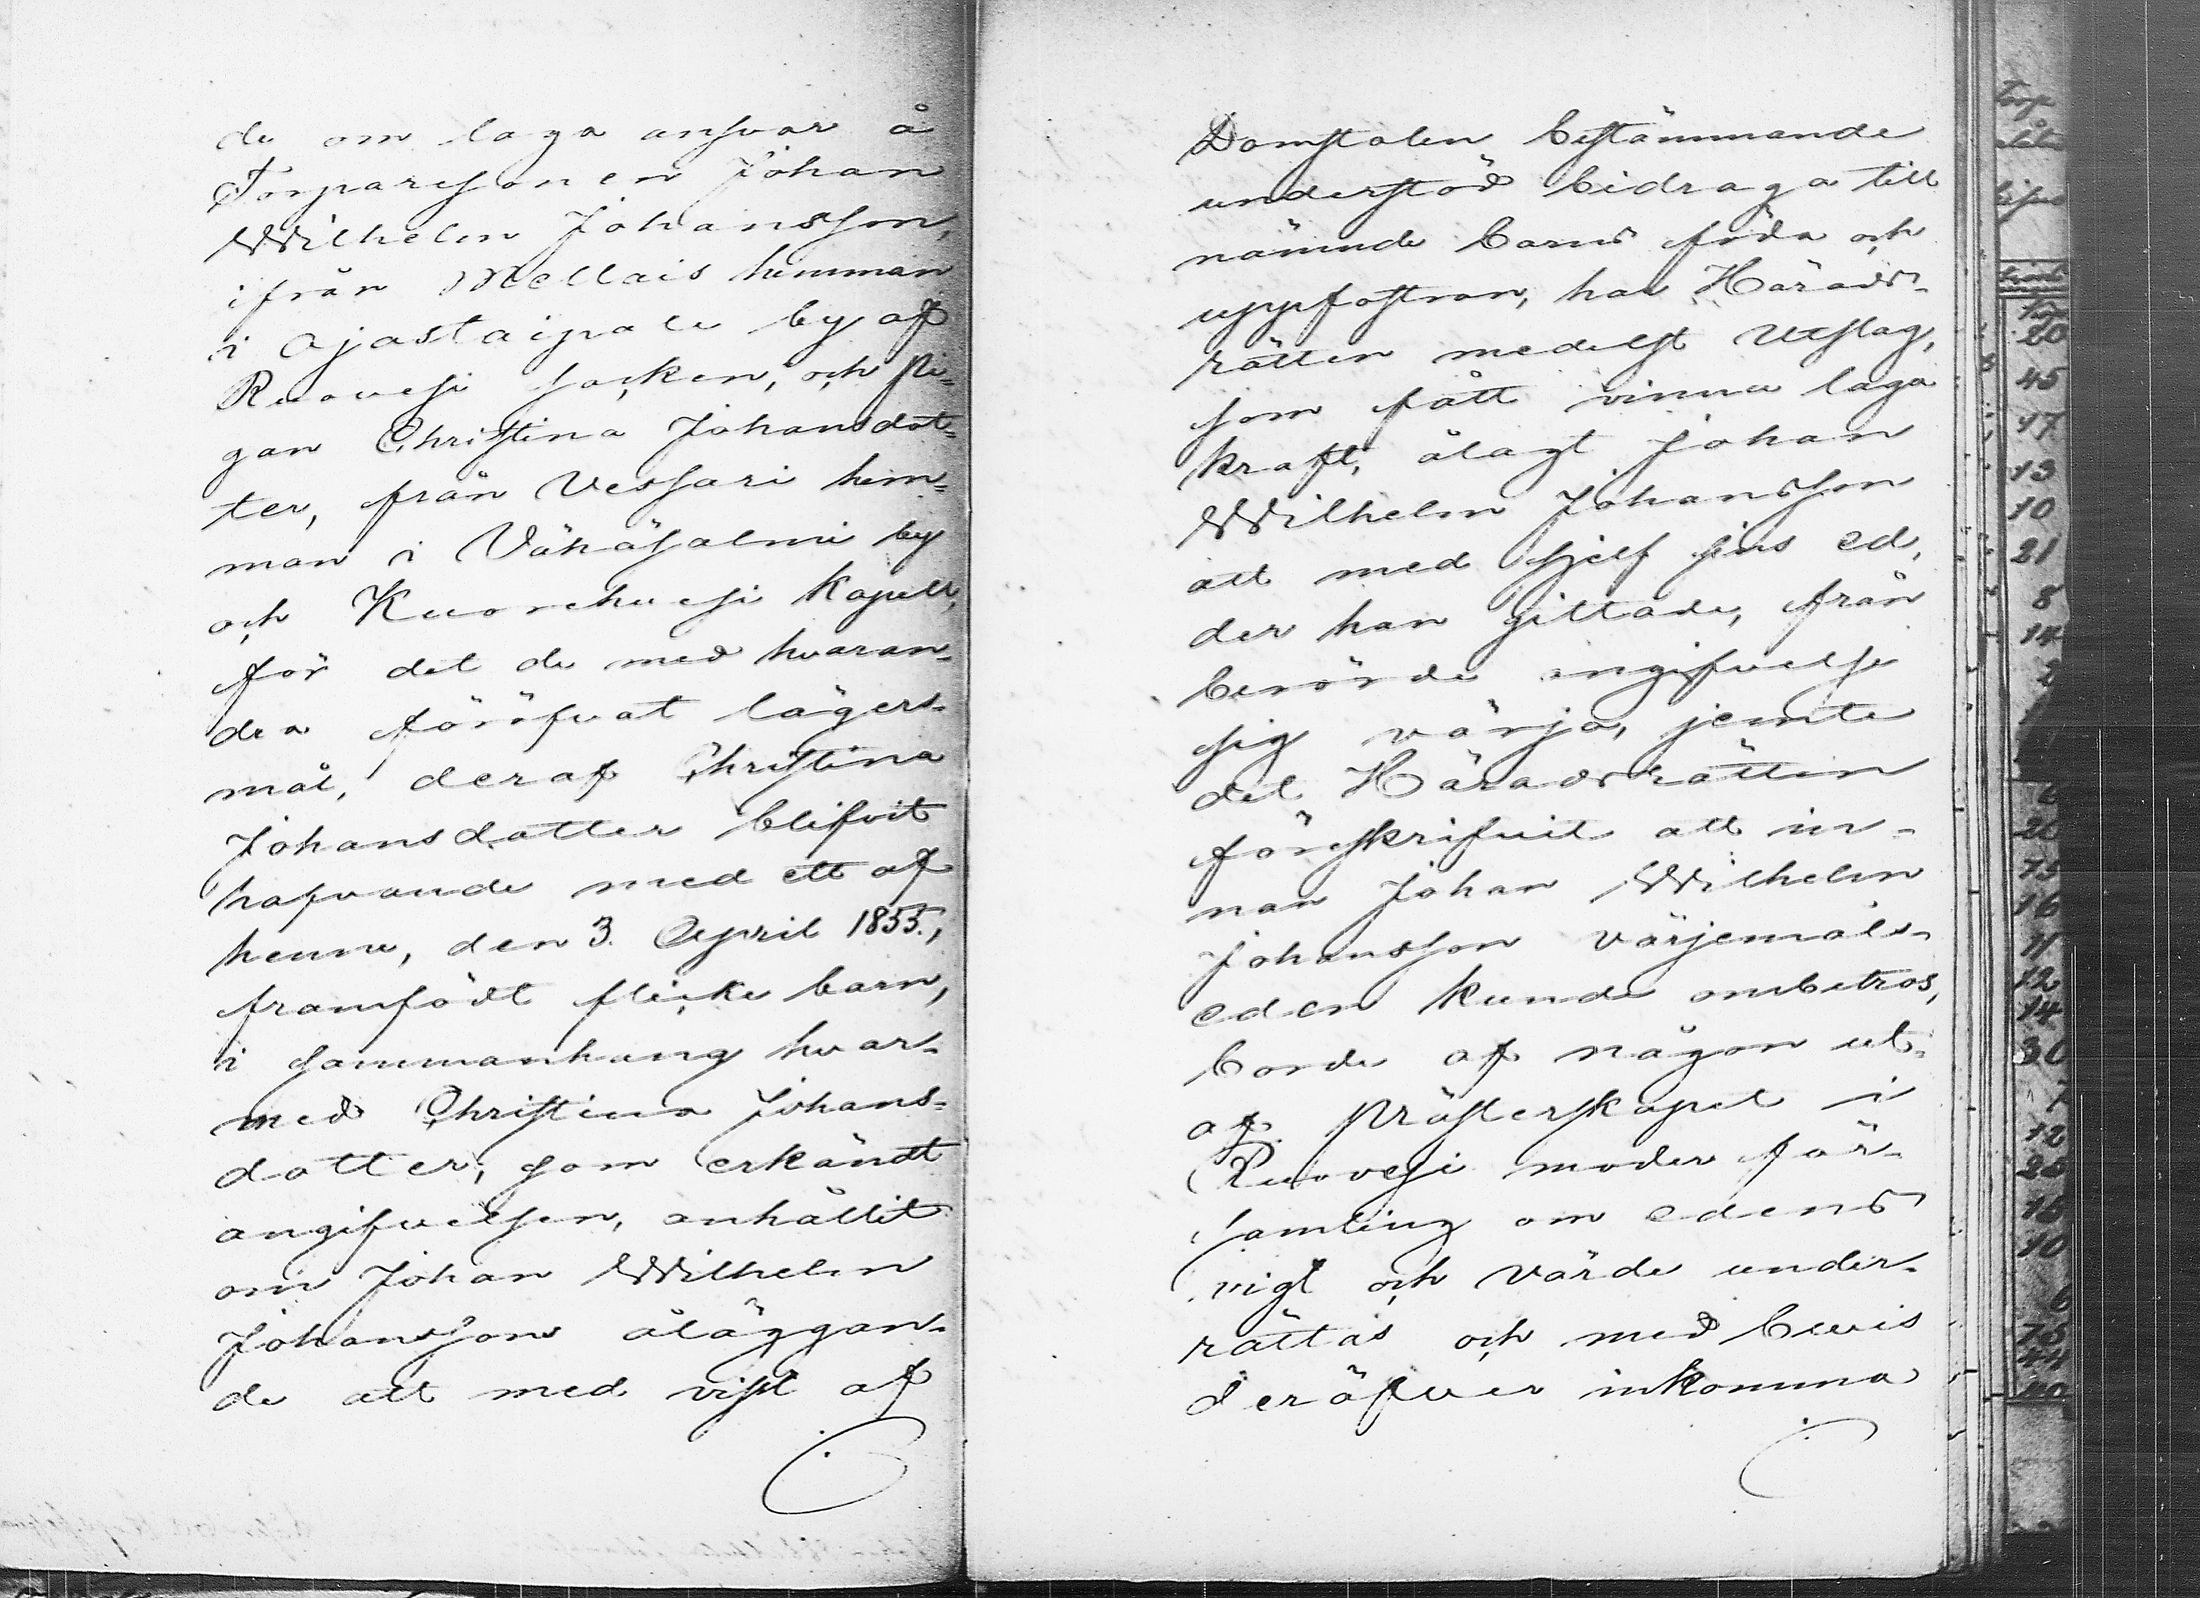 de om laga ansvar å
Torparesonen Johan
Wilhelm Johansson,
ifrån Mellais hemman
i Ajastaipale by af
Ruovesi socken, och Pi-
gan Christina Johansdot-
ter, från Vessari hem-
man i Vähäsalmi by
och Kuorehvesi Kapell,
för det de med hvaran-
dra föröfvat lägers-
mål, deraf Christina
Johansdotter blifvit
hafvande med ett af
henne, den 3. April 1855.,
framfödt flicke barn,
i sammanhang hvar-
med Christina Johans-
dotter, som erkändt
angifvelsen, anhållit
om Johan Wilhelm
Johanssons åläggan-
de att med visst af
Domstolen bestämmande
understöd bidraga till
nämnde barns föda och
uppfostran, har Härads-
rätten medelst Utslag,
som fått vinna laga
kraft, ålagt Johan
Wilhelm Johansson
att med sjelf sins ed,
der han gittade, från
berörde angifvelse
sig värja, jemte
det Häradsrätten
förskrifvit att in-
nan Johan Wilhelm
Johansson värjemåls-
eden kunde ombetros,
borde af någon ut-
af Presterskapet i
Ruovesi moder för-
samling om edens
vigt och värde under-
rättas och med bevis
deröfver inkomma
20
45
17
13
10
21
8
14
2
6
20
75
16
11
12
14
30
7
12
28
16
10
6